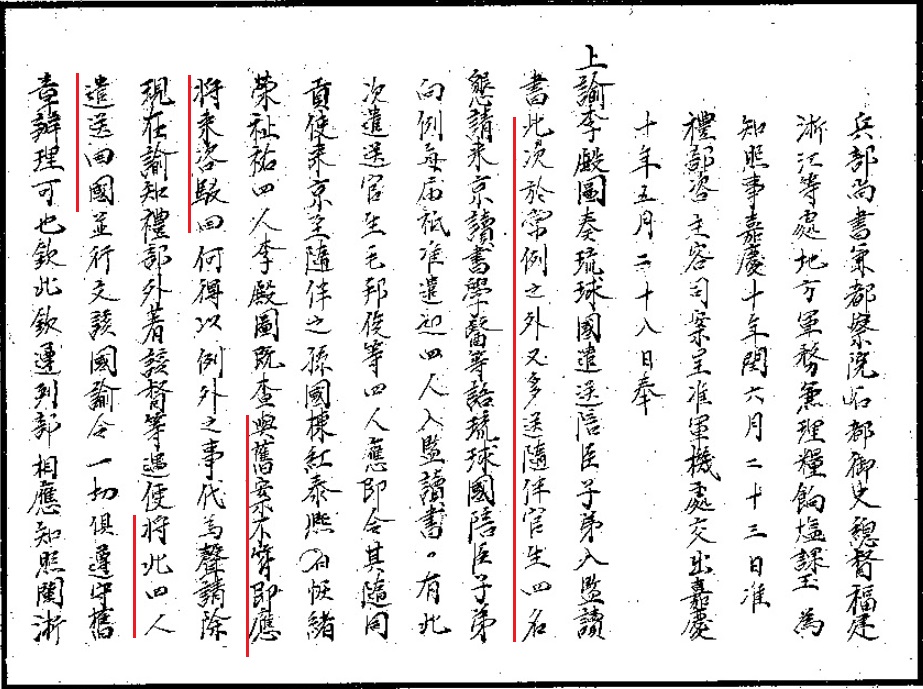 兵部尚書兼都察院右都御史總督福建
浙江等處地方軍務兼理糧餉塩課玉為
知照事嘉慶十年閏六月二十三日准
禮部咨主客司案呈准軍機處交出嘉慶
十年五月二十八日奉
上諭李殿圖奏琉球國遣送陪臣子弟入監讀
書此次於常例之外又多送隨伴官生四名
懇請来京讀書學醫等語琉球國陪臣子弟
向例每届祇准遣四人入監讀書有此
次遣送官生毛邦俊等四人應即令其隨同
貢使来京至隨伴之孫國棟紅泰熙向緒
榮祉祐四人李殿圖既查與舊案不符即應
将来咨駁回何得以例外之事代為聲請除
現在諭知禮部外着該督等遇便将此四人
遣送回國並行文該國諭令一切俱遵守舊
章辦理可也欽此欽遵到部相應知照閩浙